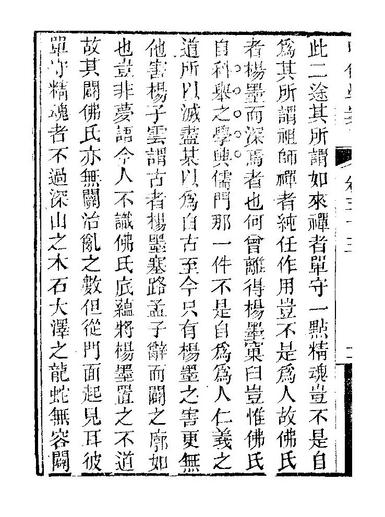 此二途其所謂如來禪者單守一點精魂豈不是自
爲其所謂祖師禪者純任作用豈不是爲人故佛氏
者楊墨而深焉者也何曾離得楊墨窠臼豈惟佛氏
自科舉之學興儒門那一件不是自爲爲人仁義之
道所以滅盡某以爲自古至今只有楊墨之害更無
他害楊子雲謂古者楊墨塞路孟子辭而闢之廓如
也豈非夢語今人不識佛氏底蘊將楊墨置之不道
故其闢佛氏亦無關治亂之數但從門面起見耳彼
單守精魂者不過深山之木石大澤之龍蛇無容闢